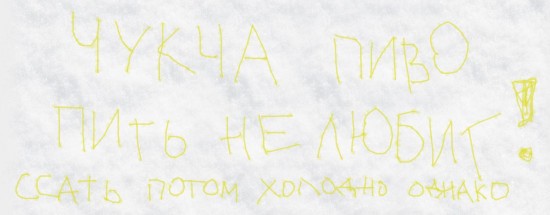 ЧУКЧА ПИВО
ПИТЬ НЕ ЛЮБИТ!
ССАТЬ ПОТОМ ХОЛОДНО ОДНАКО